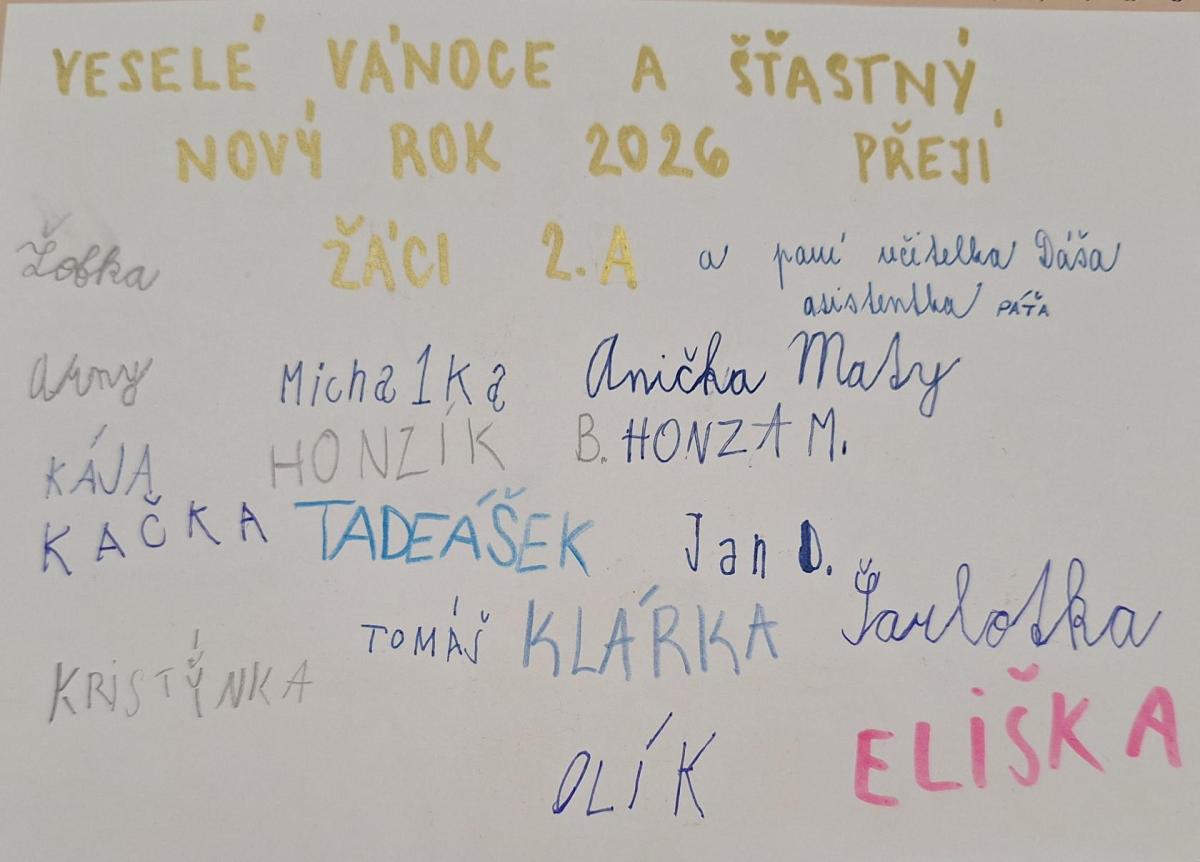 VESELÉ VÁNOCE A ŠŤASTNÝ
NOVÝ ROK 2026 PŘEJÍ
ŽÁCI 2.A a paní učitelka Dáša
asistentka PÁŤA
Žofka
Arny Michalka Anička Maty
KÁJA HONZÍK B. HONZA M.
KAČKA TADEÁŠEK Jan D.
TOMÁŠ KLÁRKA Šarlotka
KRISTÝNKA
OLÍK ELIŠKA